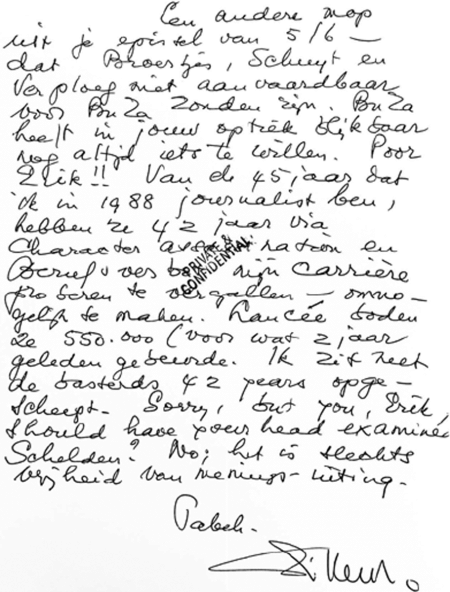 Een andere mop
uit je epistel van 5/6 –
dat Broertjes, Schuyt en
Verploeg niet aanvaardbaar
voor BuZa zouden zijn. BuZa
heeft in jouw optiek blijkbaar
nog altijd iets te willen. Poor
Erik!! Van de 45 jaar dat
ik in 1988 journalist ben,
hebben ze 42 jaar via
Character ration en
Berufsver mijn carrière
proberen te vergallen – onmo-
gelijk te maken. Lancée boden
ze 550.000 (voor wat 2 jaar
geleden gebeurde. Ik zit met
de bastards 42 years opge-
scheept. Sorry, but you, Erik,
should have your head examined
Schelden? No; het is slechts
vrijheid van menings-uiting.
Tabeh.
PRIVATE &
CONFIDENTIAL